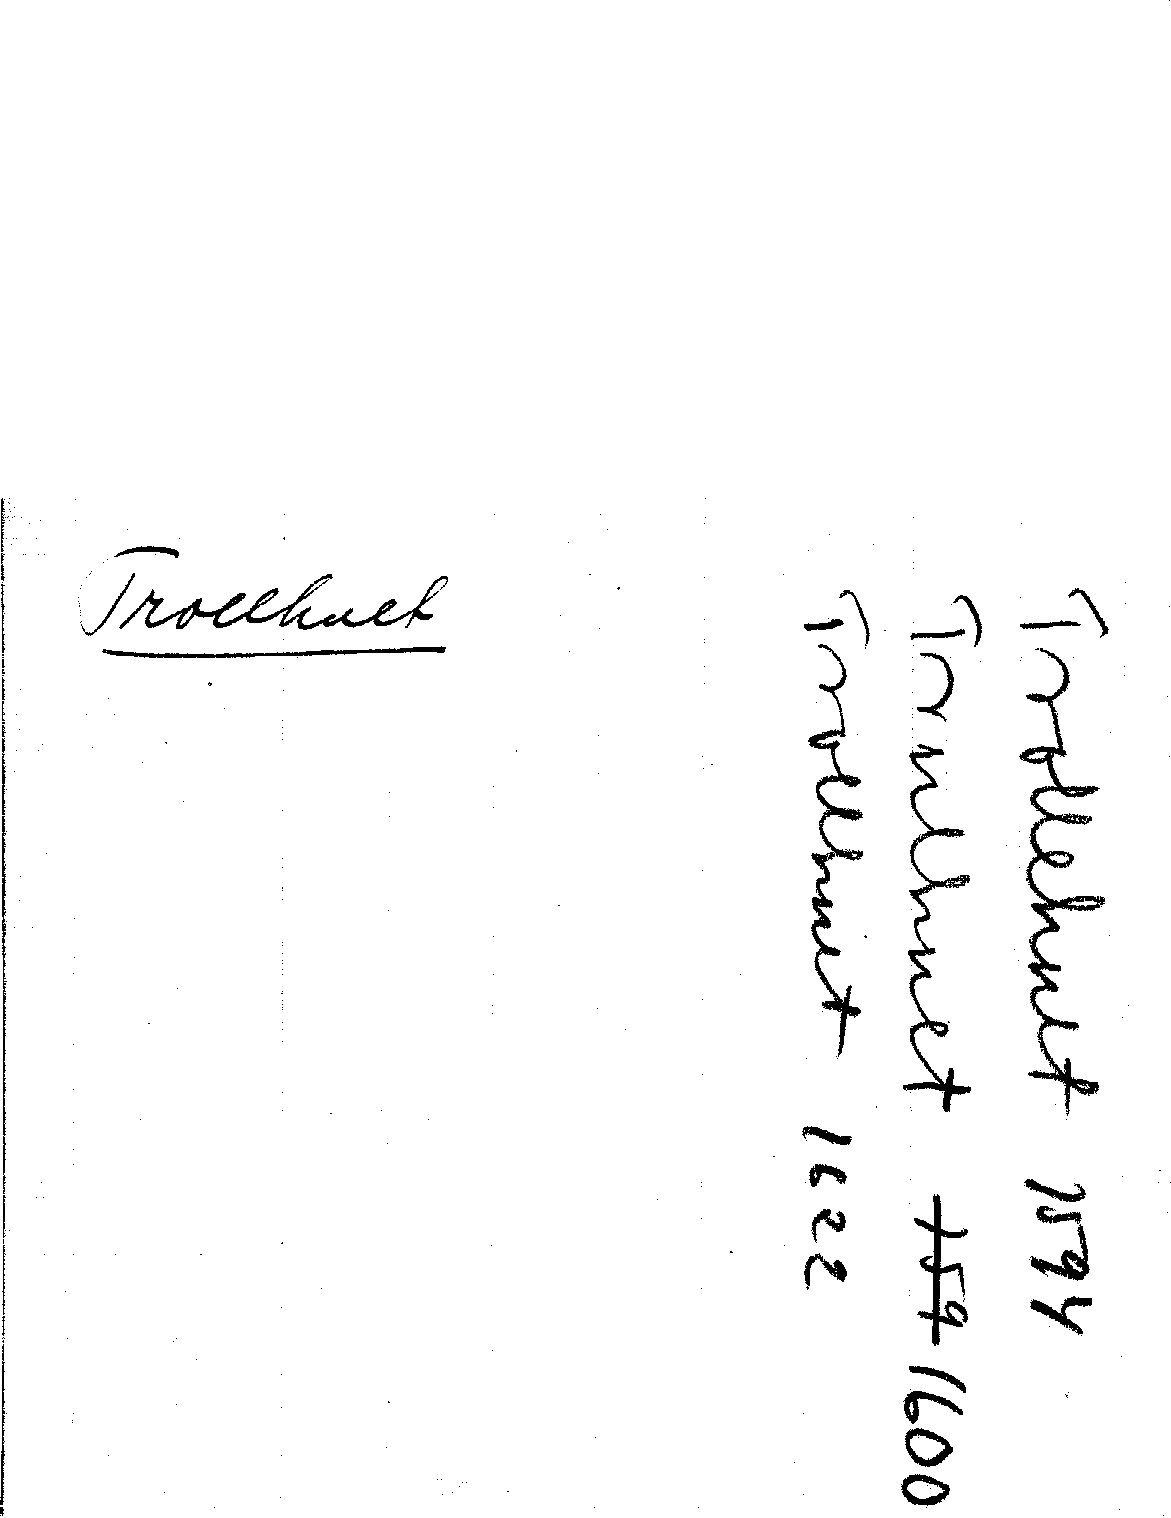 Trollhuet
Trollehuet 1594
Trulhuet 159 1600
Trollhuet 1622